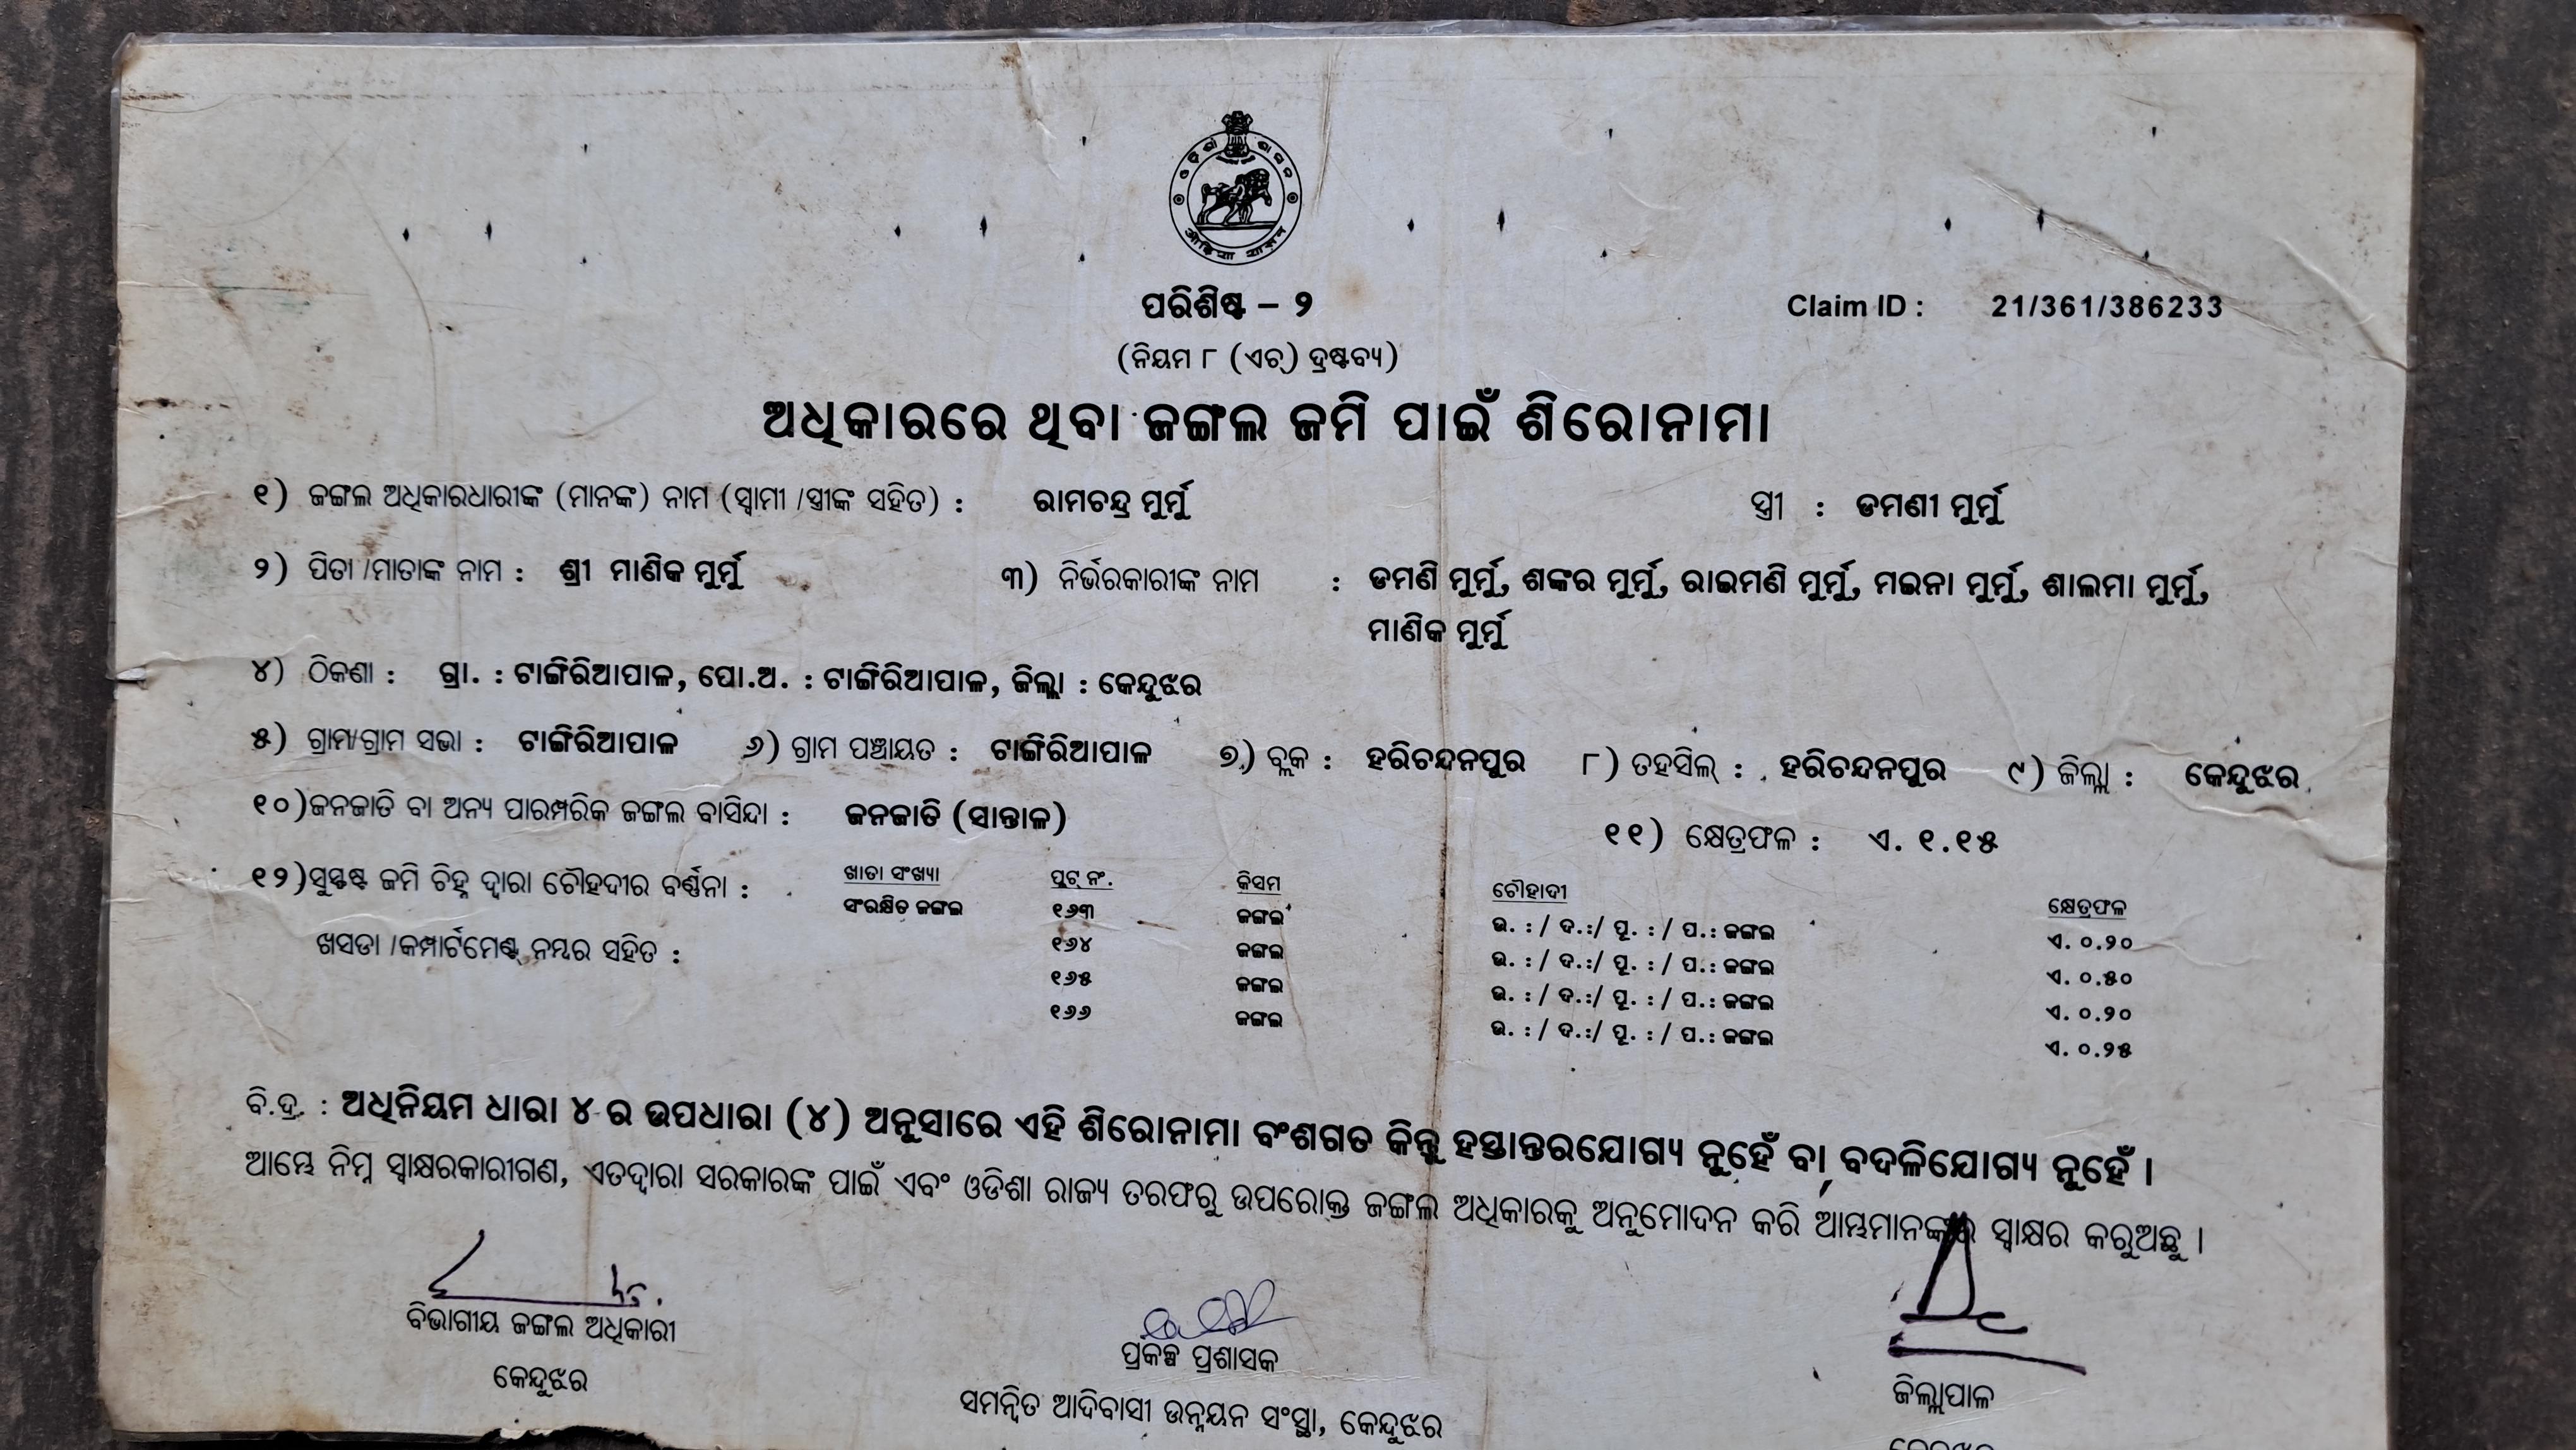 ଓଡ଼ିଶା ଶାସନ
ओड़िशा शासन
ପରିଶିଷ୍ଟ – ୨
Claim ID : 21/361/386233
(ନିୟମ ୮ (ଏଚ୍) ଦ୍ରଷ୍ଟବ୍ୟ)
ଅଧିକାରରେ ଥିବା ଜଙ୍ଗଲ ଜମି ପାଇଁ ଶିରୋନାମା
୧) ଜଙ୍ଗଲ ଅଧିକାରଧାରୀଙ୍କ (ମାନଙ୍କ) ନାମ (ସ୍ୱାମୀ /ସ୍ତ୍ରୀଙ୍କ ସହିତ) : ରାମଚନ୍ଦ୍ର ମୁର୍ମୁ ସ୍ତ୍ରୀ : ଡମଣୀ ମୁର୍ମୁ
୨) ପିତା /ମାତାଙ୍କ ନାମ : ଶ୍ରୀ ମାଣିକ ମୁର୍ମୁ ୩) ନିର୍ଭରକାରୀଙ୍କ ନାମ : ଡମଣି ମୁର୍ମୁ, ଶଙ୍କର ମୁର୍ମୁ, ରାଇମଣି ମୁର୍ମୁ, ମଇନା ମୁର୍ମୁ, ଶାଲମା ମୁର୍ମୁ,
ମାଣିକ ମୁର୍ମୁ
୪) ଠିକଣା : ଗ୍ରା. : ଟାଙ୍ଗିରିଆପାଳ, ପୋ.ଅ. : ଟାଙ୍ଗିରିଆପାଳ, ଜିଲ୍ଲା : କେନ୍ଦୁଝର
୫) ଗ୍ରାମ/ଗ୍ରାମ ସଭା : ଟାଙ୍ଗିରିଆପାଳ ୬) ଗ୍ରାମ ପଞ୍ଚାୟତ : ଟାଙ୍ଗିରିଆପାଳ ୭) ବ୍ଲକ : ହରିଚନ୍ଦନପୁର ୮) ତହସିଲ୍ : ହରିଚନ୍ଦନପୁର ୯) ଜିଲ୍ଲା : କେନ୍ଦୁଝର
୧୦) ଜନଜାତି ବା ଅନ୍ୟ ପାରମ୍ପରିକ ଜଙ୍ଗଲ ବାସିନ୍ଦା : ଜନଜାତି (ସାନ୍ତାଳ) ୧୧) କ୍ଷେତ୍ରଫଳ : ଏ. ୧.୧୫
୧୨) ସୁସ୍ପଷ୍ଟ ଜମି ଚିହ୍ନ ଦ୍ୱାରା ଚୌହଦୀର ବର୍ଣ୍ଣନା : ଖାତା ସଂଖ୍ୟା ପ୍ଲଟ୍ ନଂ. କିସମ ଚୌହାଦୀ କ୍ଷେତ୍ରଫଳ
ସଂରକ୍ଷିତ ଜଙ୍ଗଲ ୧୬୩ ଜଙ୍ଗଲ ଉ. : / ଦ.:/ ପୂ. : / ପ.: ଜଙ୍ଗଲ ଏ. ୦.୨୦
ଖସଡା /କମ୍ପାର୍ଟମେଣ୍ଟ୍ ନମ୍ବର ସହିତ : ୧୬୪ ଜଙ୍ଗଲ ଉ. : / ଦ.:/ ପୂ. : / ପ.: ଜଙ୍ଗଲ ଏ. ୦.୫୦
୧୬୫ ଜଙ୍ଗଲ ଉ. : / ଦ.:/ ପୂ. : / ପ.: ଜଙ୍ଗଲ ଏ. ୦.୨୦
୧୬୬ ଜଙ୍ଗଲ ଉ. : / ଦ.:/ ପୂ. : / ପ.: ଜଙ୍ଗଲ ଏ. ୦.୨୫
ବି.ଦ୍ର. : ଅଧିନିୟମ ଧାରା ୪ ର ଉପଧାରା (୪) ଅନୁସାରେ ଏହି ଶିରୋନାମା ବଂଶଗତ କିନ୍ତୁ ହସ୍ତାନ୍ତରଯୋଗ୍ୟ ନୁହେଁ ବା ବଦଳିଯୋଗ୍ୟ ନୁହେଁ ।
ଆମ୍ଭେ ନିମ୍ନ ସ୍ୱାକ୍ଷରକାରୀଗଣ, ଏତଦ୍ୱାରା ସରକାରଙ୍କ ପାଇଁ ଏବଂ ଓଡିଶା ରାଜ୍ୟ ତରଫରୁ ଉପରୋକ୍ତ ଜଙ୍ଗଲ ଅଧିକାରକୁ ଅନୁମୋଦନ କରି ଆମ୍ଭମାନଙ୍କର ସ୍ୱାକ୍ଷର କରୁଅଛୁ ।
ବିଭାଗୀୟ ଜଙ୍ଗଲ ଅଧିକାରୀ
କେନ୍ଦୁଝର
ପ୍ରକଳ୍ପ ପ୍ରଶାସକ
ସମନ୍ୱିତ ଆଦିବାସୀ ଉନ୍ନୟନ ସଂସ୍ଥା, କେନ୍ଦୁଝର
ଜିଲ୍ଲାପାଳ